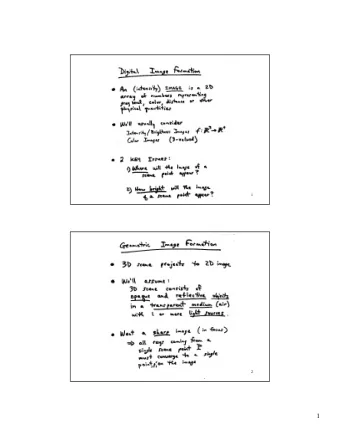 Digital Image Formation
• An (intensity) IMAGE is a 2D
array of numbers representing
gray level, color, distance or other
physical quantities
• We'll usually consider
Intensity/Brightness Images f: R² → R⁺
Color Images (3-valued)
• 2 Key Issues:
1) Where will the image of a
scene point appear?
2) How bright will the image
of a scene point appear?
1
Geometric Image Formation
• 3D scene projects to 2D image
• We'll assume:
3D scene consists of
opaque and reflective objects
in a transparent medium (air)
with 1 or more light sources.
• Want a sharp image (in focus)
⇒ all rays coming from a
single scene point P
must converge to a single
point on the image
2
1